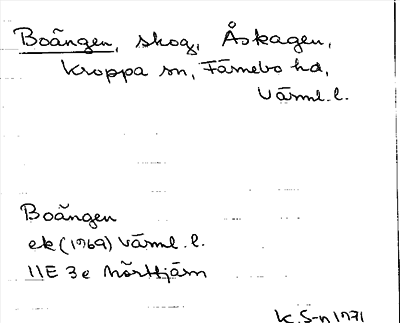 Boängen, skog, Åskagen,
Kroppa sn, Färnebo hd,
Värml. l.
Boängen
ek (1969) Värml. l.
11E 3e Mörttjärn
K. S-n 1971